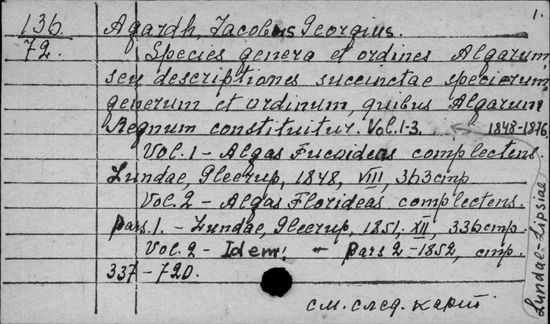 1.
136.
72.
Agardh, Jacobus Georgius.
Species genera et ordines Algarum,
seu descriptiones succinctae specierum,
generum et ordinum, quibus Algarum
Regnum constituitur. Vol. 1-3. 1848-1876.
Vol. 1 - Algas Fucoideas complectens.
Lundae, Gleerup, 1848, VIII, 363 стр
Vol. 2 - Algas Florideas complectens.
Pars. 1. - Lundae, Gleerup, 1851. XII, 336 стр.
Vol. 2 - Idem: - Pars 2 - 1852, стр.
337 - 720.
см. след. карт
Lundae-Lipsiae